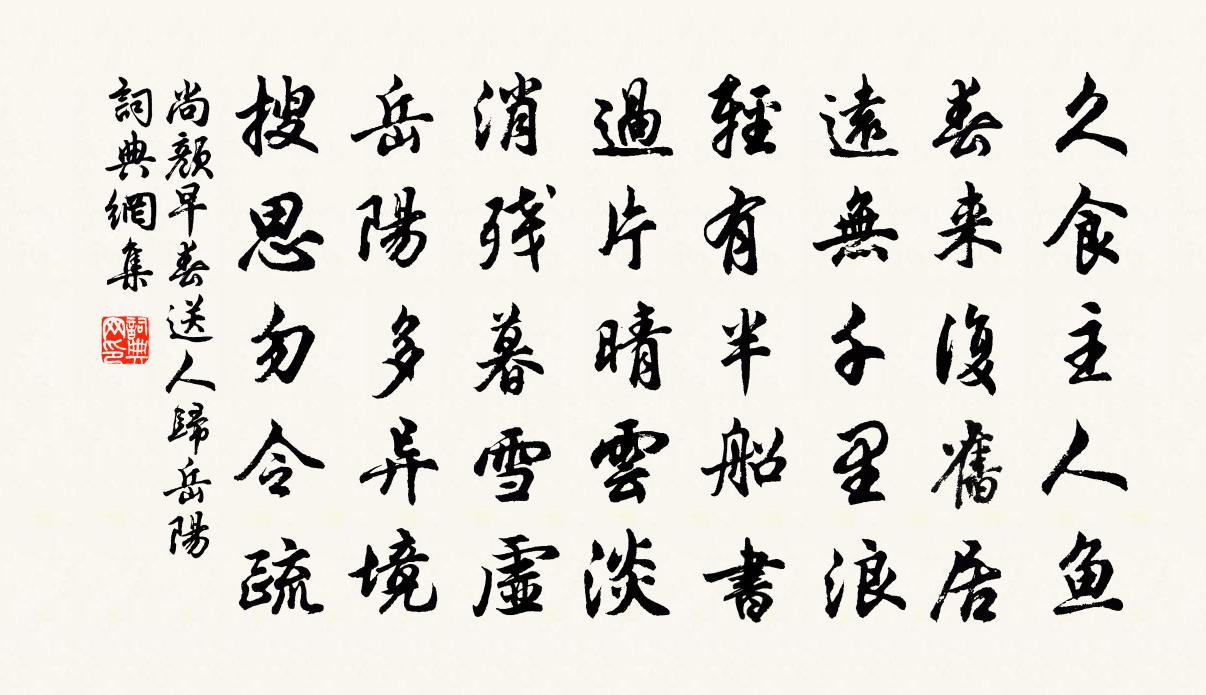 久食主人魚
春来復舊居
遠無千里浪
輕有半船書
過片晴雲淡
消残暮雪虛
岳陽多异境
搜思勿令疏
尚顔早春送人歸岳陽
詞典網集
詞典网印